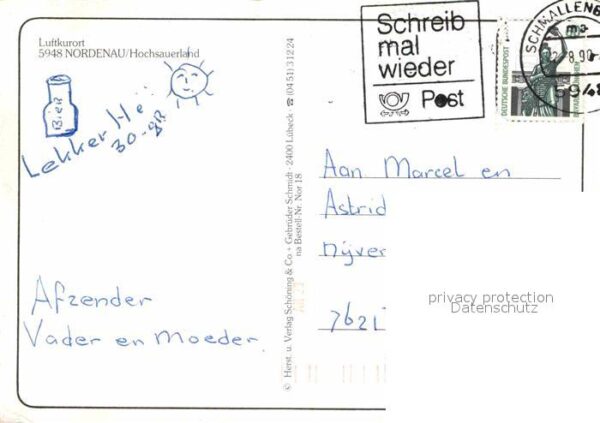 Luftkurort
5948 NORDENAU/Hochsauerland
Bier
Lekker Hè
30-gr
Afzender
Vader en Moeder.
© Herst. u. Verlag Schöning & Co + Gebrüder Schmidt · 2400 Lübeck · ☎ (0451) 3 12 24
na Bestell-Nr. Nor 18
Schreib
mal
wieder
Post
SCHMALLENB
8.90
5948
DEUTSCHE BUNDESPOST
Aan Marcel en
Astrid
nijver
privacy protection
Datenschutz